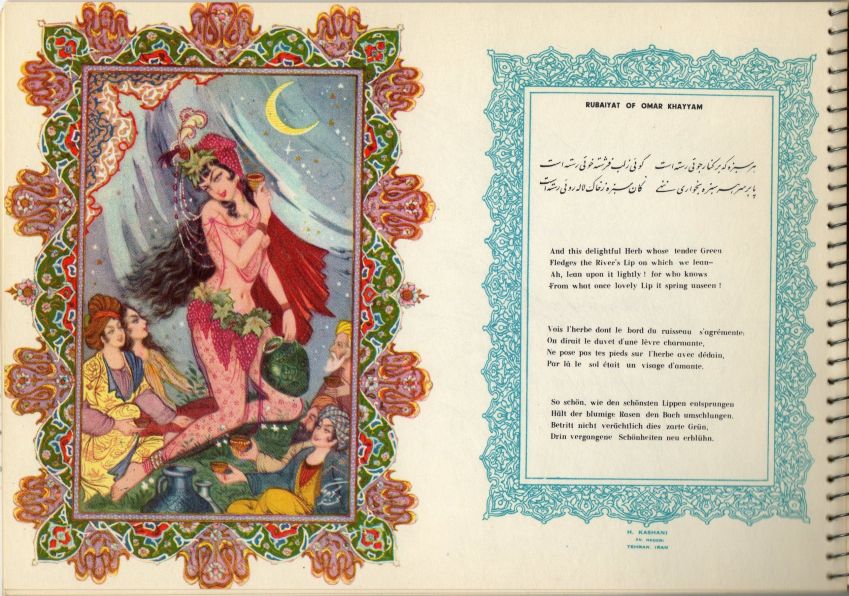 RUBAIYAT OF OMAR KHAYYAM
هر سبزه که بر کنار جوئی رسته است گوئی ز لب فرشته خوئی رسته است
پا بر سر هر سبزه بخواری ننهی کان سبزه ز خاک لاله روئی رسته است
And this delightful Herb whose tender Green
Fledges the River's Lip on which we lean—
Ah, lean upon it lightly! for who knows
From what once lovely Lip it spring unseen!
Vois l'herbe dont le bord du ruisseau s'agrémente;
On dirait le duvet d'une lèvre charmante,
Ne pose pas tes pieds sur l'herbe avec dédain,
Par là le sol était un visage d'amante.
So schön, wie den schönsten Lippen entsprungen
Hält der blumige Rasen den Bach umschlungen.
Betritt nicht verächtlich dies zarte Grün,
Drin vergangene Schönheiten neu erblühn.
H. KASHANI
AV. NASERI
TEHRAN, IRAN